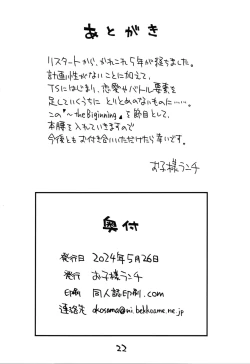 あとがき
リスタートから、かれこれ5年が経ちました。
計画性がないことに加えて、
TSにはじまり、恋愛やバトル要素を
足していくうちに とりとめのないものに……。
この『~the Biginning』を節目として、
本腰を入れていきますので
今後ともお付き合いいただけたら幸いです。
お子様ランチ
奥付
発行日 2024年5月26日
発行 お子様ランチ
印刷 同人誌印刷.com
連絡先 okosama@wi.bekkoame.ne.jp
22